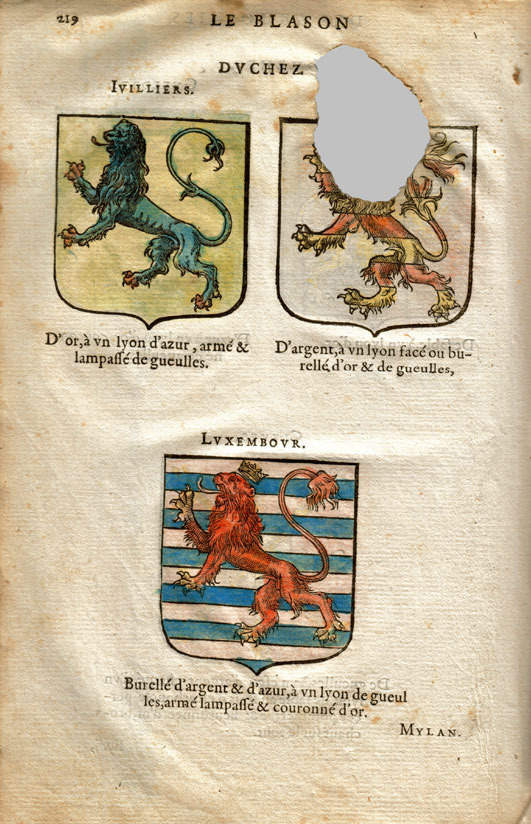 219
LE BLASON
DVCHEZ
IVILLIERS.
D'or, à vn lyon d'azur, armé &
lampaſſé de gueulles.
D'argent, à vn lyon facé ou bu-
rellé, d'or & de gueulles,
LVXEMBOVR.
Burellé d'argent & d'azur, à vn lyon de gueul
les, armé lampaſſé & couronné d'or.
MYLAN.